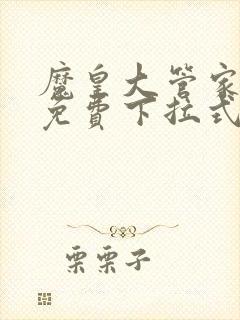 魔皇大管家
免費下拉式
栗栗子